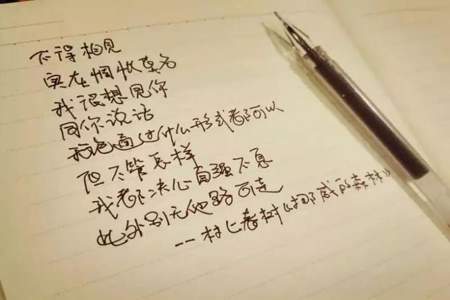 不得相见
实在惆怅莫名
我很想见你
同你说话
无论通过什么形式都可以
但不管怎样
我都决心自强不息
此外别无他路可走
——村上春树《挪威的森林》